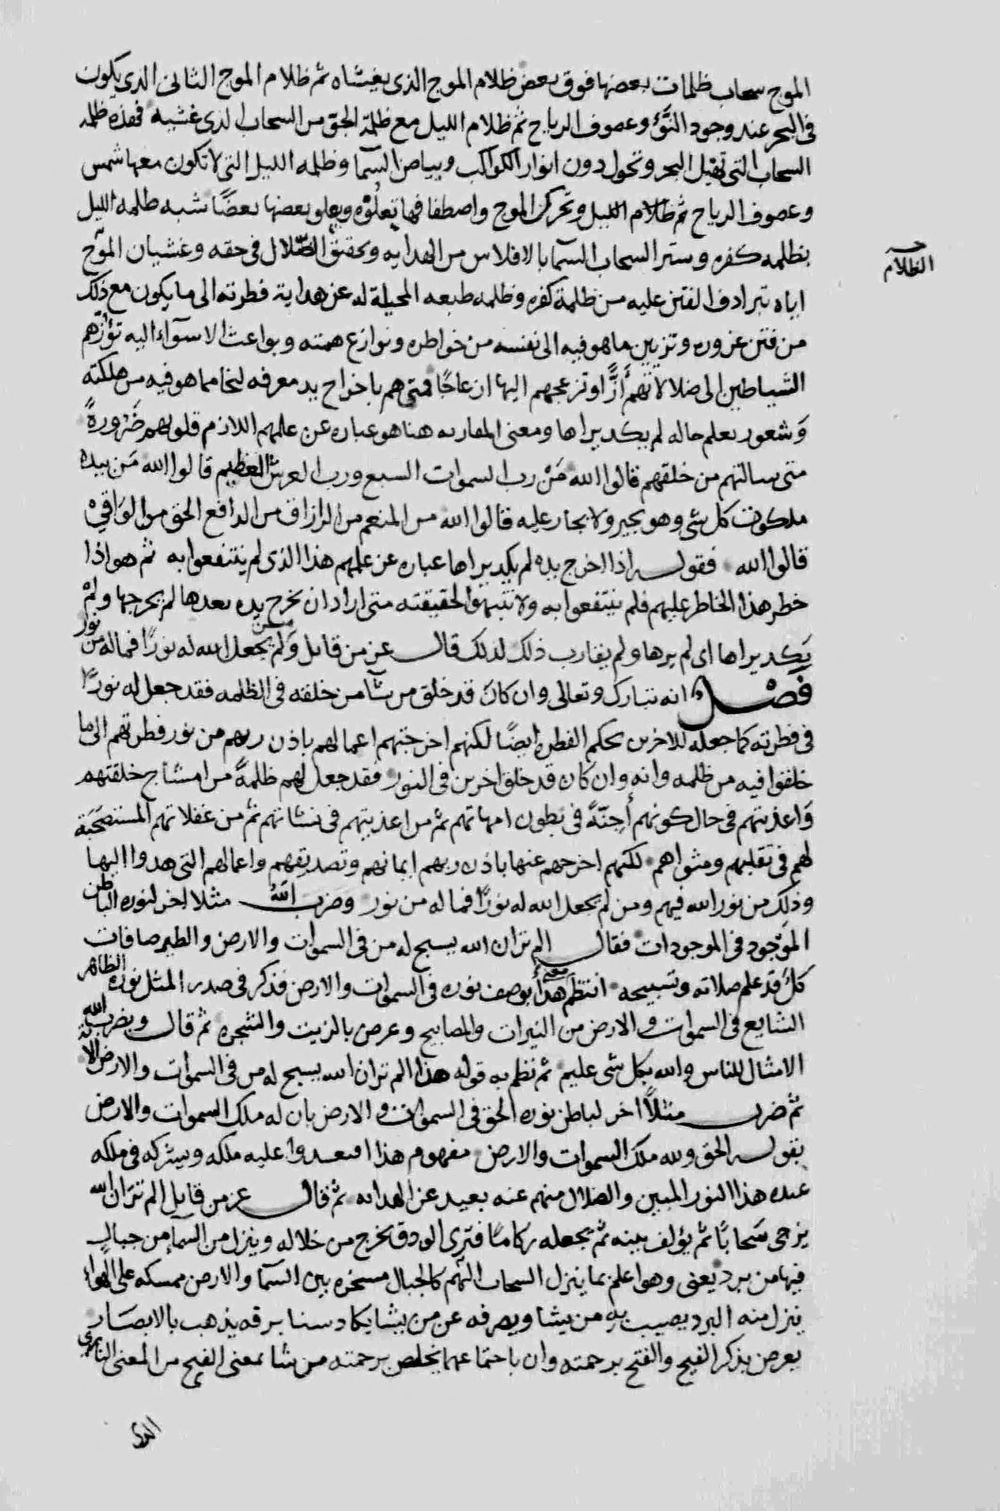 الموج سحاب ظلمات بعضها فوق بعض ظلام الموج الذى يغشاه ثم ظلام الموج الثانى الذى يكون
فى البحر عند وجود النَّوْء وعصوف الرياح ثم ظلام الليل مع ظلمة الجو من السحاب الذى غشيه فهذه ظلمة
السحاب التى تقبل البحر وتحول دون انوار الكواكب وبياض السما وظلمه الليل التى لا تكون معها شمس
وعصوف الرياح ثم ظلام الليل وتحرك الموج واصطفافها يَعلُوه ويعلو بعضها بعضًا شبه ظلمه الليل
بظلمه كفره وستر السحاب السما بالافلاس من الهدايه وتحقق الضّلال فى حقه وغشيان الموّج
الظلام
اياه ترادف الفتن عليه من ظلمة كفره وظلمه طبعه المحيلة له عن هداية فطرته الى ما يكون مع ذلك
من فتن غروره وتزيين ما هو فيه الى نفسه من خواطره ونوازع همته وبواعث الاسواء اليه تؤزّهم
الشياطين الى ضلالاتهم أزًّا وتزعجهم اليها ازعاجًا فمتى هم باخراج يد معرفه لنجا مما هو فيه من هلكته
وَشعور بعلم حاله لم يكد يراها ومعنى المقاربه هنا هو عباره عن علمهم اللازم قلوبهم ضَرُورةً
متى سالتهم من خلقهم قالوا الله مَنْ رب السموات السبع ورب العرش العظيم قالوا الله مَن بيده
ملكوت كل شى وهو يجير ولا يجار عليه قالوا الله من المنعم من الرازق من الدافع الحق من الوَاقِى
قالوا الله فقوله اذا اخرج يده لم يكد يراها عباره عن علمهم هذا الذى لم ينتفعوا به ثم هو اذا
خطر هذا الخاطر عليهم فلم ينتفعوا به ولا تنبهوا لحقيقته متى اراد ان يخرج يده بعدها لم يخرجها ولمْ
يَكد يراها اى لم يرها ولم يقارب ذلك لذلك قال عز من قايل ومن لم يجعل الله له نورًا فما له من نور
فصْل انه تبارك وتعالى وان كان قد خلق من شآ من خلقه فى الظلمه فقد جعل له نورًا
فى فطرته كما جعله للاخرين بحكم الفطره ايضًا لكنهم اخرجتهم اعمالهم باذن ربهم من نور فطرتهم الى ما
خلقوا فيه من ظلمه وانه وان كان قد خلق اخرين فى النور فقد جعل لهم ظلمةً من امشاج خلقتهم
وَاغذيتهم فى حال كونهم أجنّةً فى بطون امهاتهم ثم من اغذيتهم فى نشاتهم ثم من غفلاتهم المستصحَبَة
لهم فى تقلبهم ومثواهم لكنهم اخرجهم عنها باذن ربهم ايمانهم وتصديقهم واعمالهم التى هدوا اليها
وذلِك من نور الله فيهم ومن لم يجعل الله له نورًا فما له من نور وضرب اللهُ مثلا اخر لنوره الباطن
الموْجود فى الموجودات فقال الم تر ان الله يسبح له من فى السموات والارض والطير صافات
كل قد علم صلاته وتسبيحه انتظم معنى هذا بوصف نوره فى السموات والارض فذكر فى صدر المثل نوره الظاهر
الشايع فى السموات والارض من النيرات والمصابيح وعرض بالزيت والشجره ثم قال ويضرب الله
الامثال للناس والله بكل شى عليم ثم نظم به قوله هذا الم تر ان الله يسبح له من فى السموات والارض الاية
ثم ضرب مثلًا اخر لباطن نوره الحق فى السموات والارض بان له ملك السموات والارض
بقوله الحق ولله ملك السموات والارض مفهوم هذا عليه ملكه ويشركه فى ملكه
عبده هذا النور المبين والضلال منهم عنه بعيد عن الهدايه ثم قال عز من قايل الم تر ان الله
يزجى سَحابًا ثم يؤلف بينه ثم يجعله ركامًا فترى الودق يخرج من خلاله وينزل من السمآ من جبال
فيها من برد يعنى وهو اعلم بما ينزل السحاب انهم كالجبال مسخره بين السمآ والارض ممسكه على الهواء
ينزل منه البرد يصيب به من يشا ويصرفه عن من يشا يكاد سنا برقه يذهب بالابصَار
يعرض بذكر الفيح والفتح برحمته وان باجتماعهما يخلص برحمته من شا بمعنى الفيح من المعنى النارى
الذى